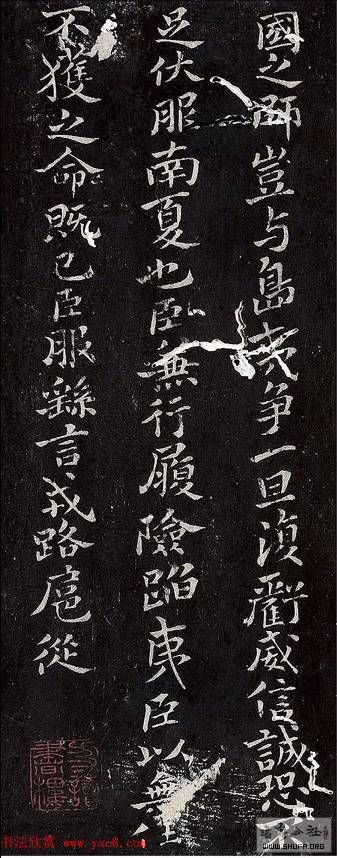 國之師豈与島夷争一旦復虧威信誠恐
足伏服南夏也臣無行履險蹈夷臣以無
不獲之命既已臣服繇言戎路扈從
书法欣赏 www.yac8.com
WWW.SHUFA.ORG